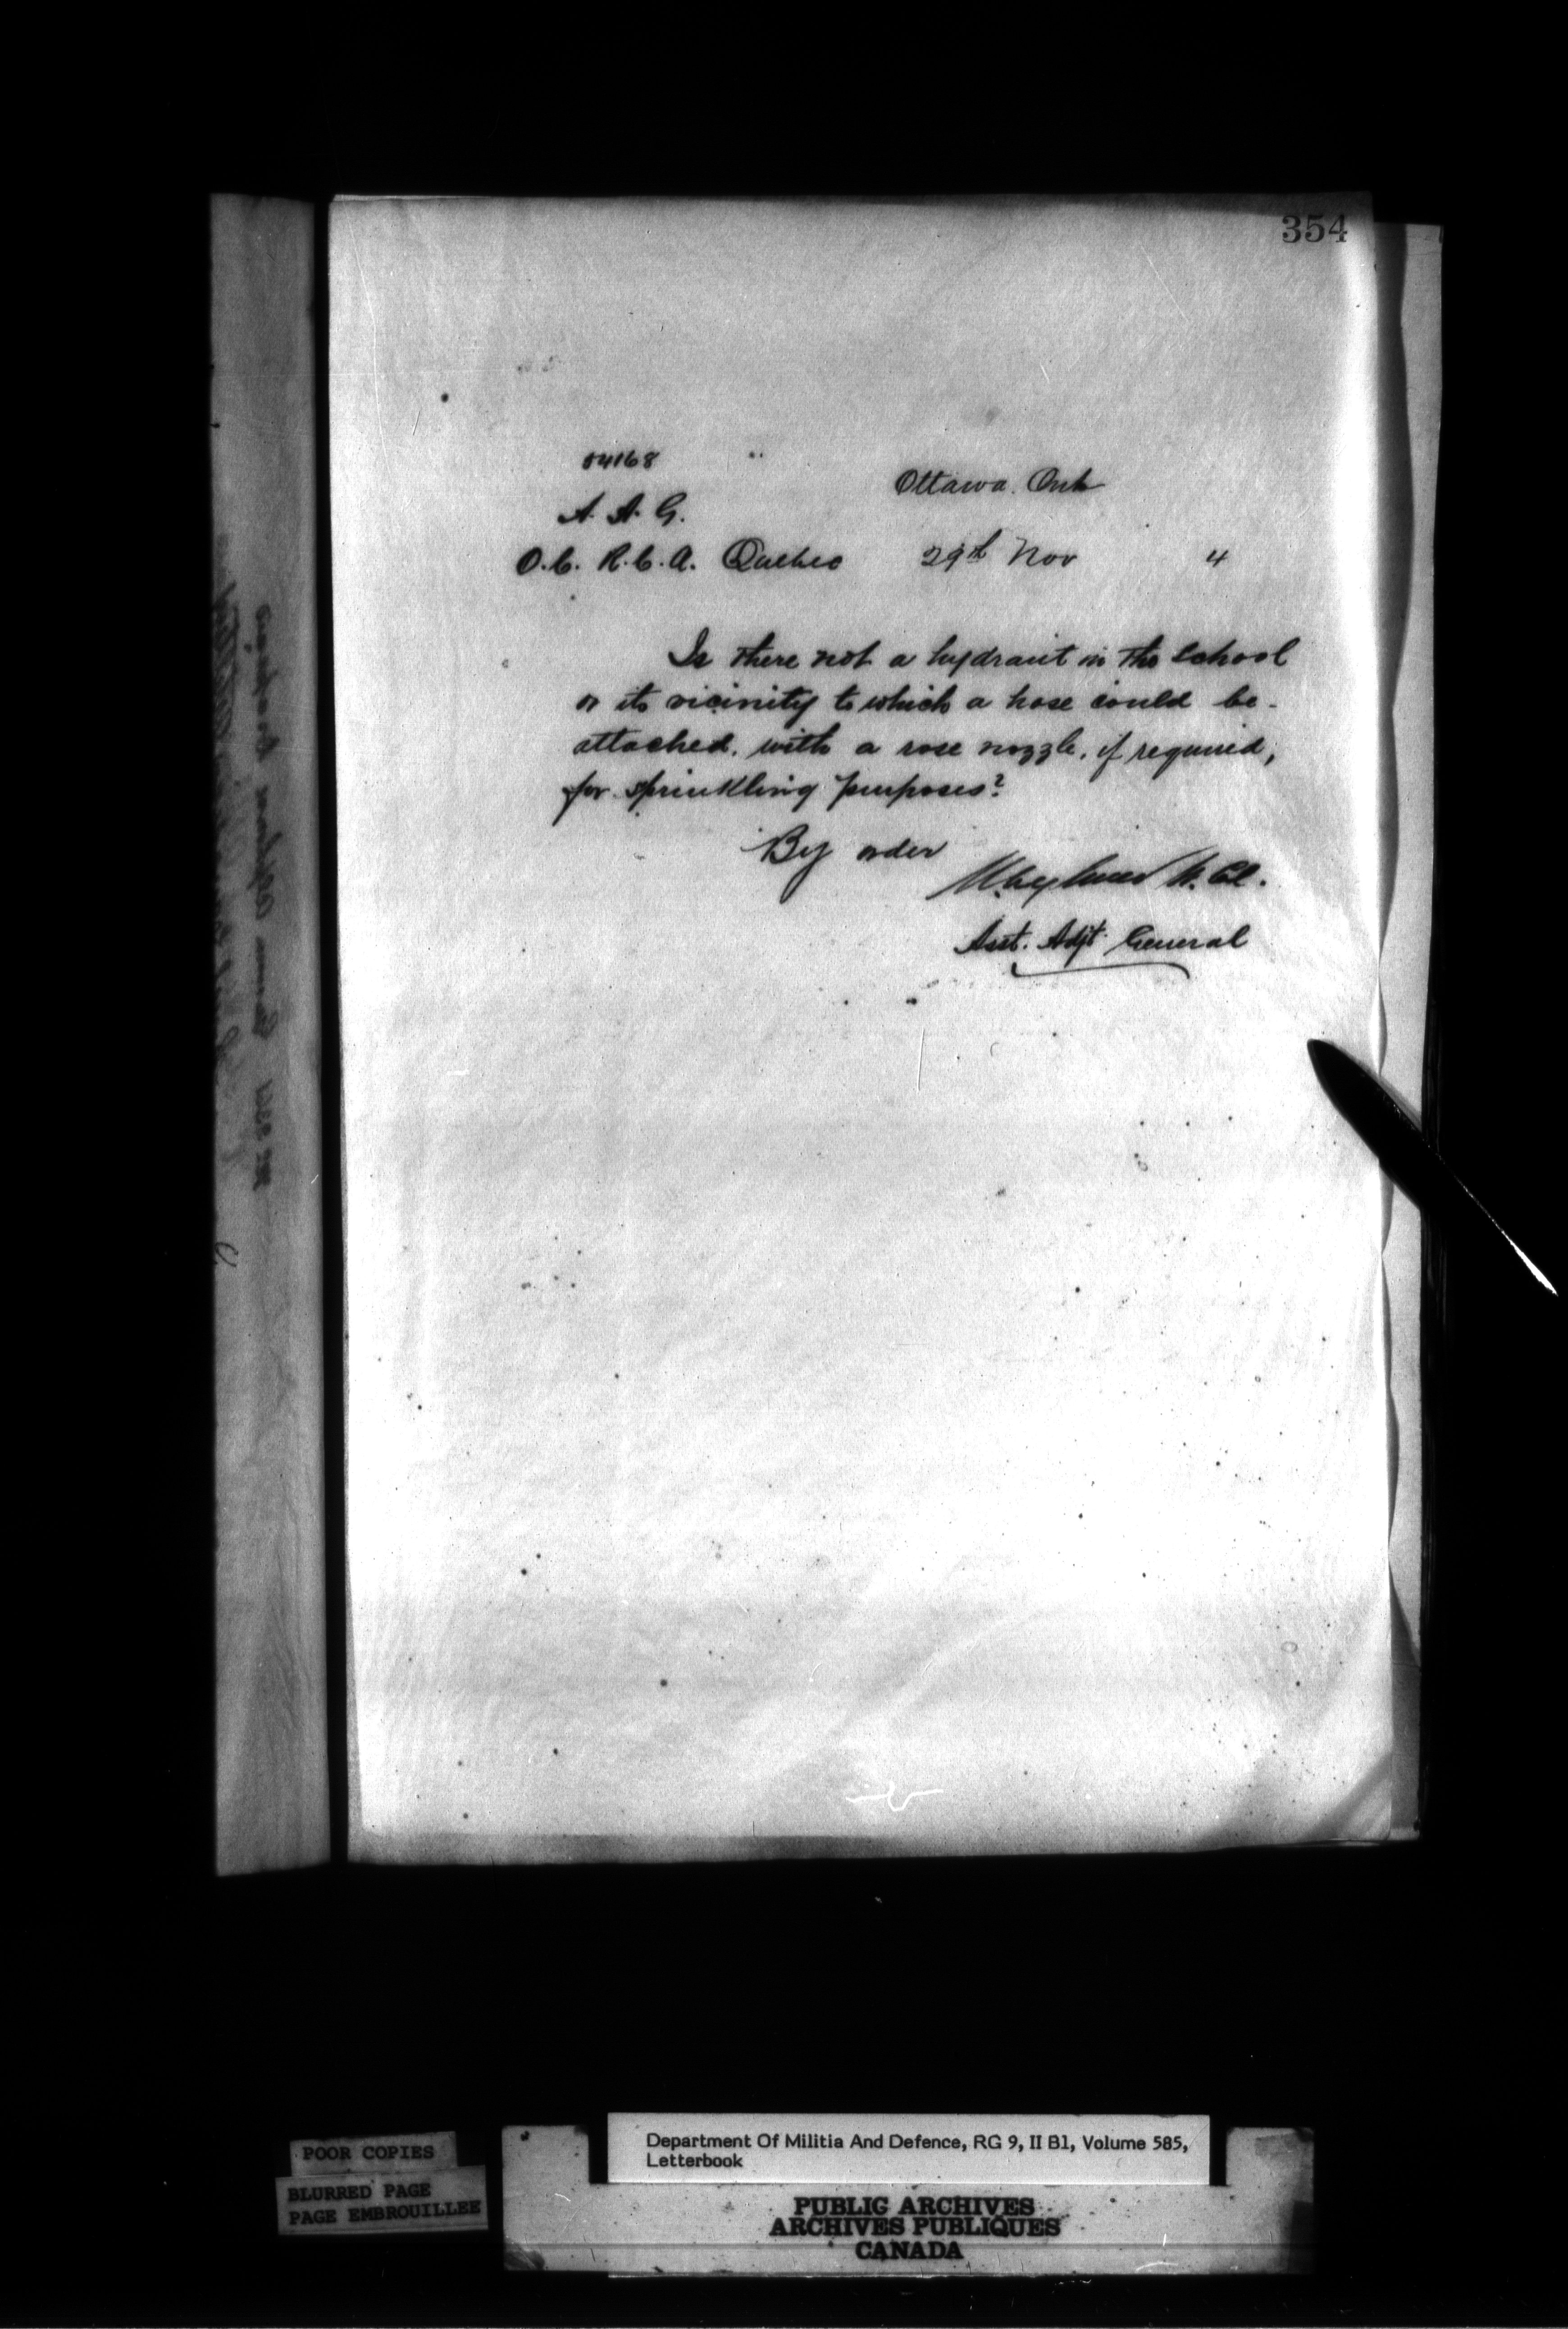 354
04168
Ottawa. Ont
A. A. G.
O.C. R.C.A. Quebec 29th Nov 4
Is there not a hydrant in the School
or its vicinity to which a hose could be
attached, with a rose nozzle, if required,
for sprinkling purposes?
By order
Asst. Adjt. General
POOR COPIES
BLURRED PAGE
PAGE EMBROUILLEE
Department Of Militia And Defence, RG 9, II B1, Volume 585,
Letterbook
PUBLIC ARCHIVES
ARCHIVES PUBLIQUES
CANADA